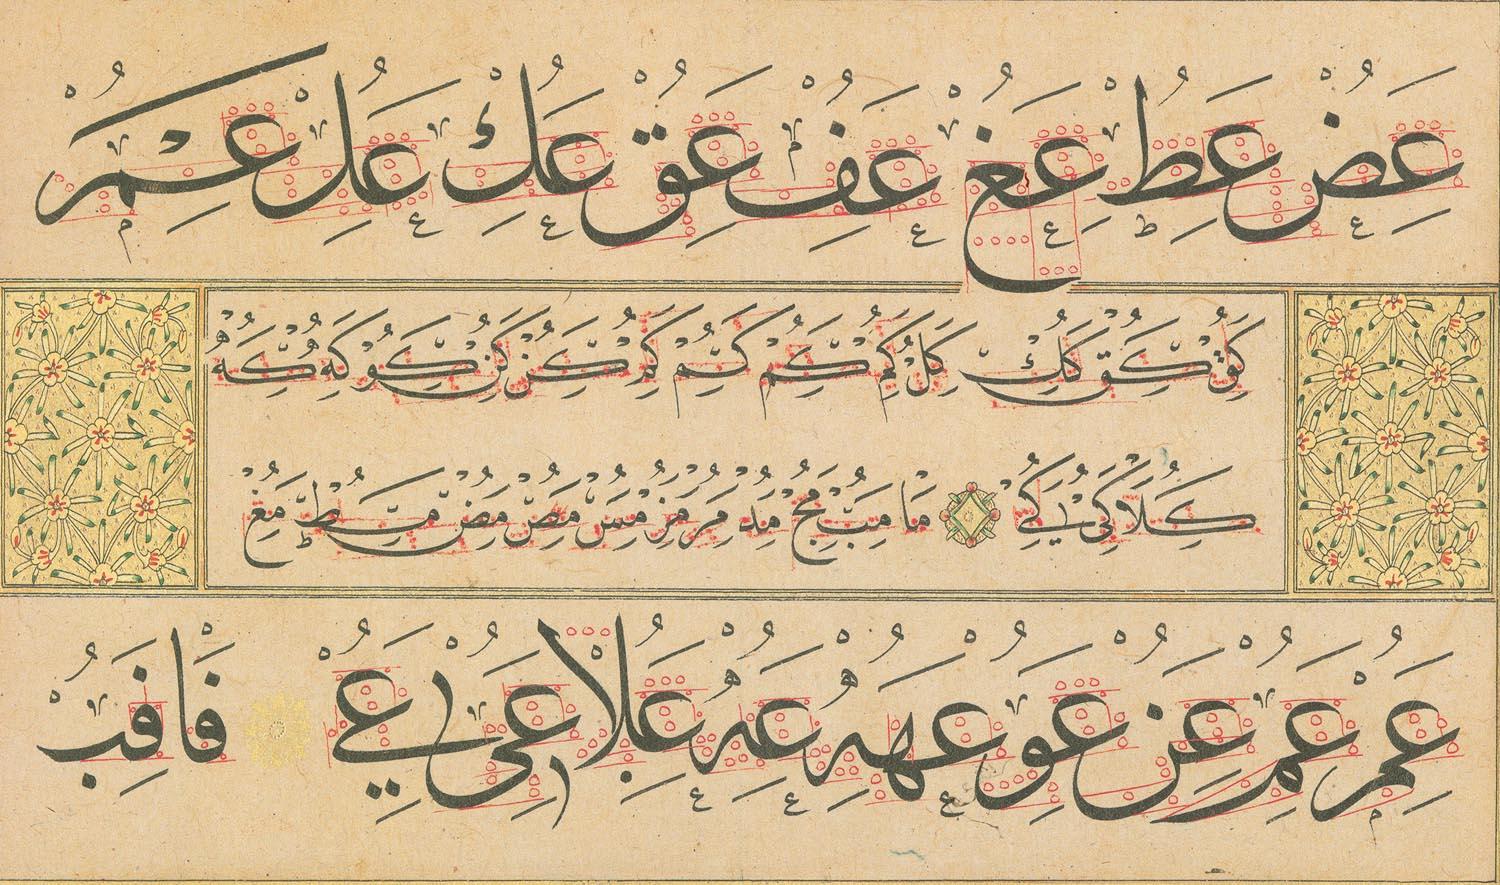 عض عط عغ عف عق عك عل عم
كق كق كك كل كم كم كم كم كن كن كو كه كه
كلا كى كى ما مب مج مد مر مز مس مص مض مط مغ
عم عم عن عو عه عه علا عى عي فا فب